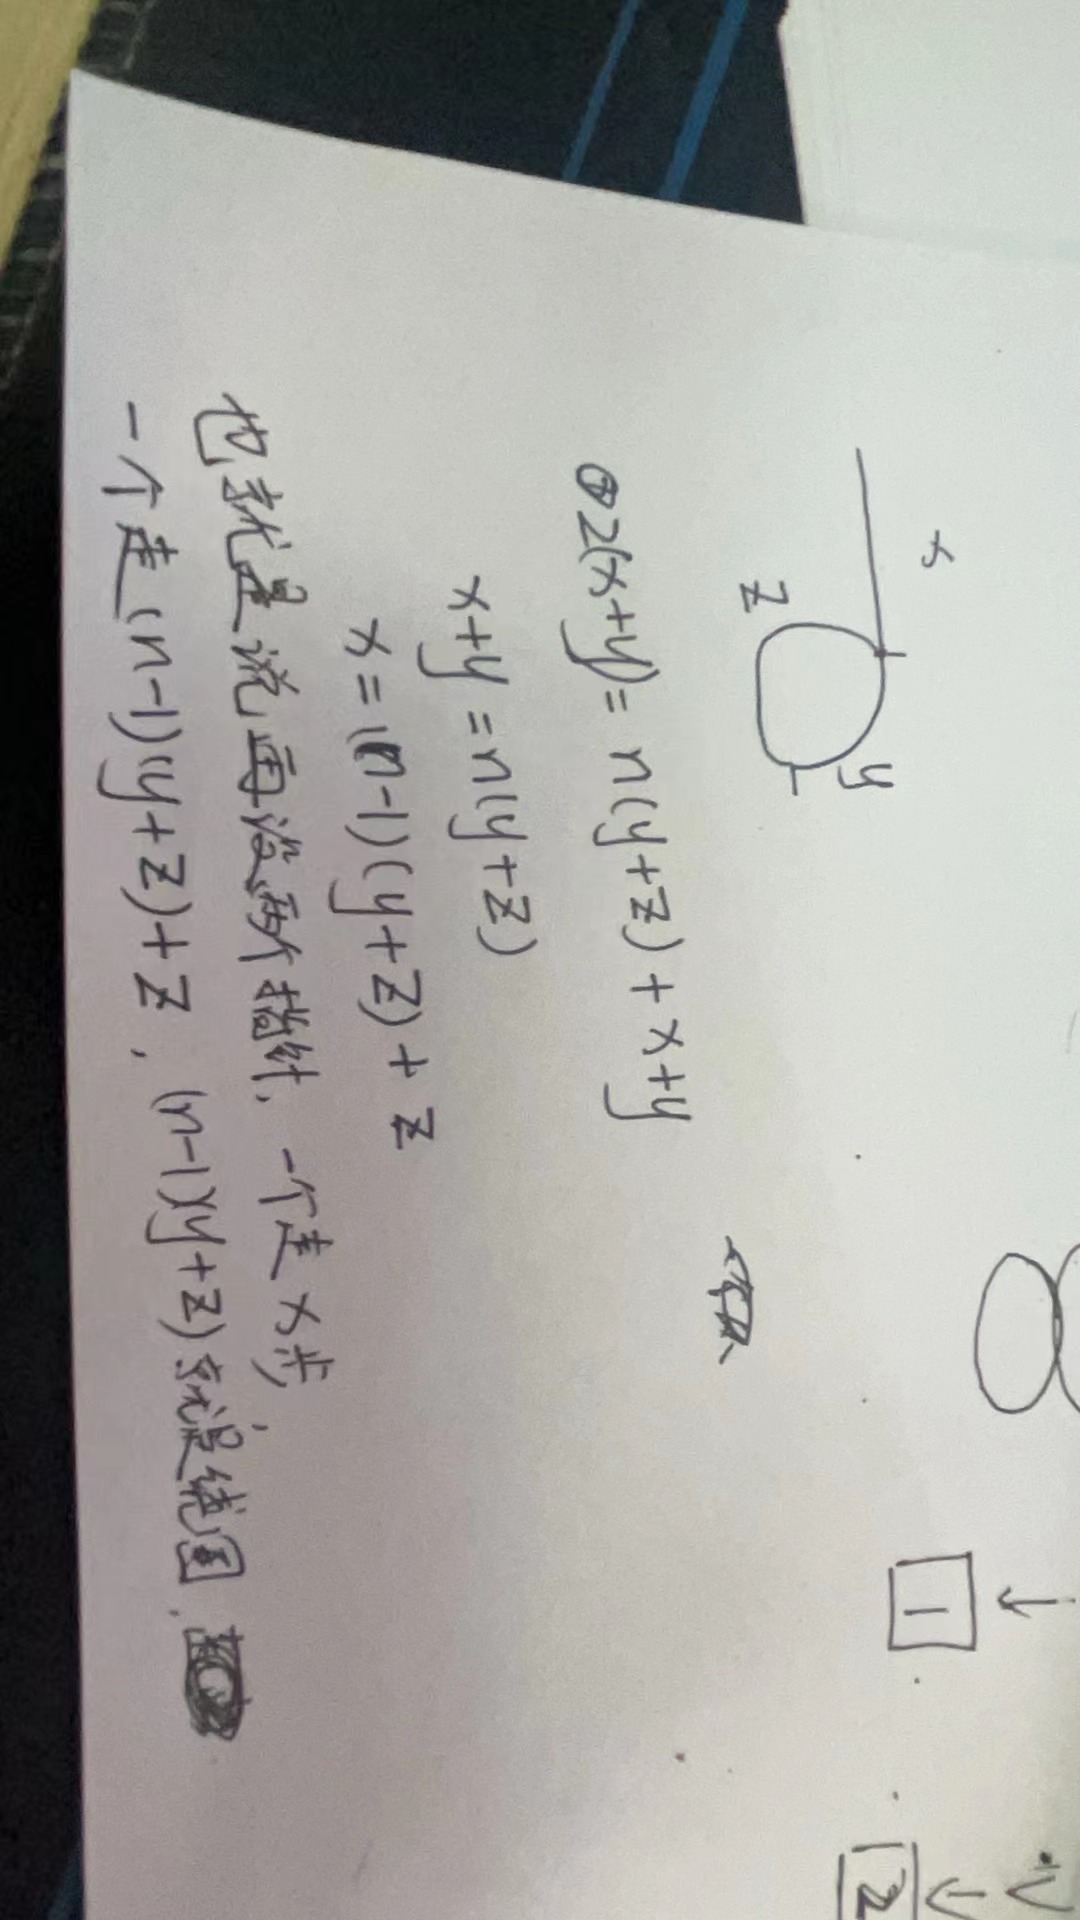 1
2
x
y
z
2(x+y)= n(y+z)+x+y
x+y=n(y+z)
x=(n-1)(y+z)+z
也就是说再设两个指针,一个走x步,
一个走(n-1)(y+z)+z,(n-1)(y+z)就是绕圈.